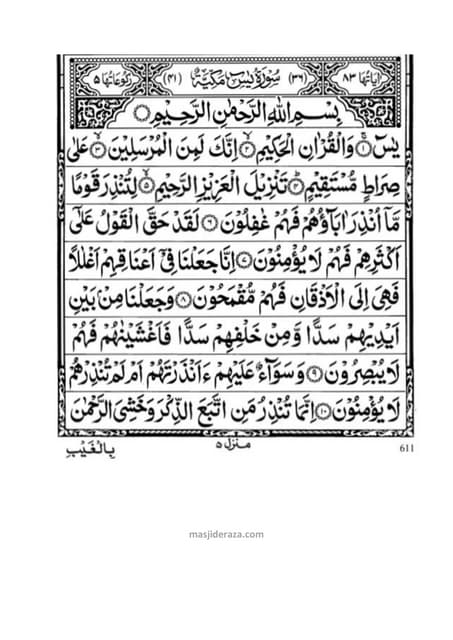 اٰیَاتُهَا ٨٣ (٣٦) سُوْرَةُ يٰسٓ مَكِّيَّةٌ (٤١) رُكُوْعَاتُهَا ٥
بِسْمِ اللّٰهِ الرَّحْمٰنِ الرَّحِيْمِ ○
يٰسٓ ۝١ وَالْقُرْاٰنِ الْحَكِيْمِ ۝٢ اِنَّكَ لَمِنَ الْمُرْسَلِيْنَ ۝٣ عَلٰى
صِرَاطٍ مُّسْتَقِيْمٍ ۝٤ تَنْزِيْلَ الْعَزِيْزِ الرَّحِيْمِ ۝٥ لِتُنْذِرَ قَوْمًا
مَّاۤ اُنْذِرَ اٰبَآؤُهُمْ فَهُمْ غٰفِلُوْنَ ۝٦ لَقَدْ حَقَّ الْقَوْلُ عَلٰٓى
اَكْثَرِهِمْ فَهُمْ لَا يُؤْمِنُوْنَ ۝٧ اِنَّا جَعَلْنَا فِيْۤ اَعْنَاقِهِمْ اَغْلٰلًا
فَهِيَ اِلَى الْاَذْقَانِ فَهُمْ مُّقْمَحُوْنَ ۝٨ وَجَعَلْنَا مِنْۢ بَيْنِ
اَيْدِيْهِمْ سَدًّا وَّمِنْ خَلْفِهِمْ سَدًّا فَاَغْشَيْنٰهُمْ فَهُمْ
لَا يُبْصِرُوْنَ ۝٩ وَسَوَآءٌ عَلَيْهِمْ ءَاَنْذَرْتَهُمْ اَمْ لَمْ تُنْذِرْهُمْ
لَا يُؤْمِنُوْنَ ۝١٠ اِنَّمَا تُنْذِرُ مَنِ اتَّبَعَ الذِّكْرَ وَخَشِيَ الرَّحْمٰنَ
بِالْغَيْبِ منزل ٥ 611
masjideraza.com